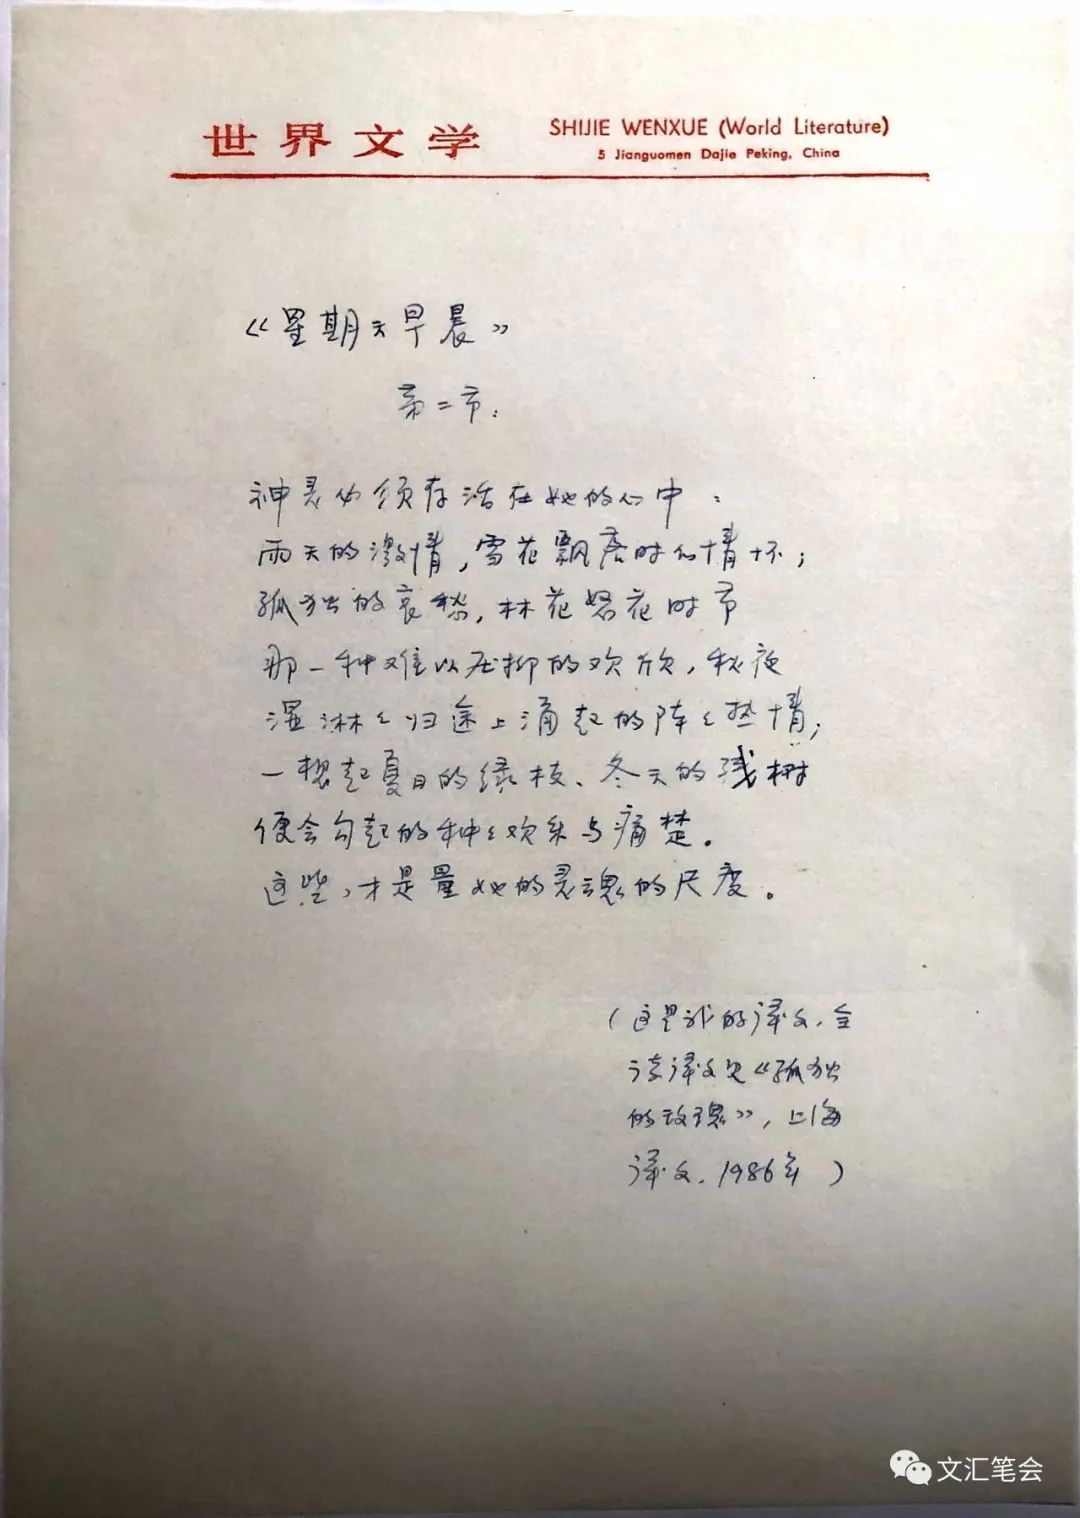 世界文学
SHIJIE WENXUE (World Literature)
5 Jianguomen Dajie Peking, China
《星期天早晨》
第二节：
神灵必须存活在她的心中：
雨天的激情，雪花飘落时的情怀；
孤独的哀愁，林花怒花时节
那一种难以压抑的欢欣，秋夜
湿淋々归途上涌起的阵々热情；
一想起夏日的绿枝、冬天的残树
便会勾起的种々欢乐与痛楚。
这些，才是量她的灵魂的尺度。
（这是我的译文，全
诗译文见《孤独
的玫瑰》，上海
译文，1986年）
文汇笔会